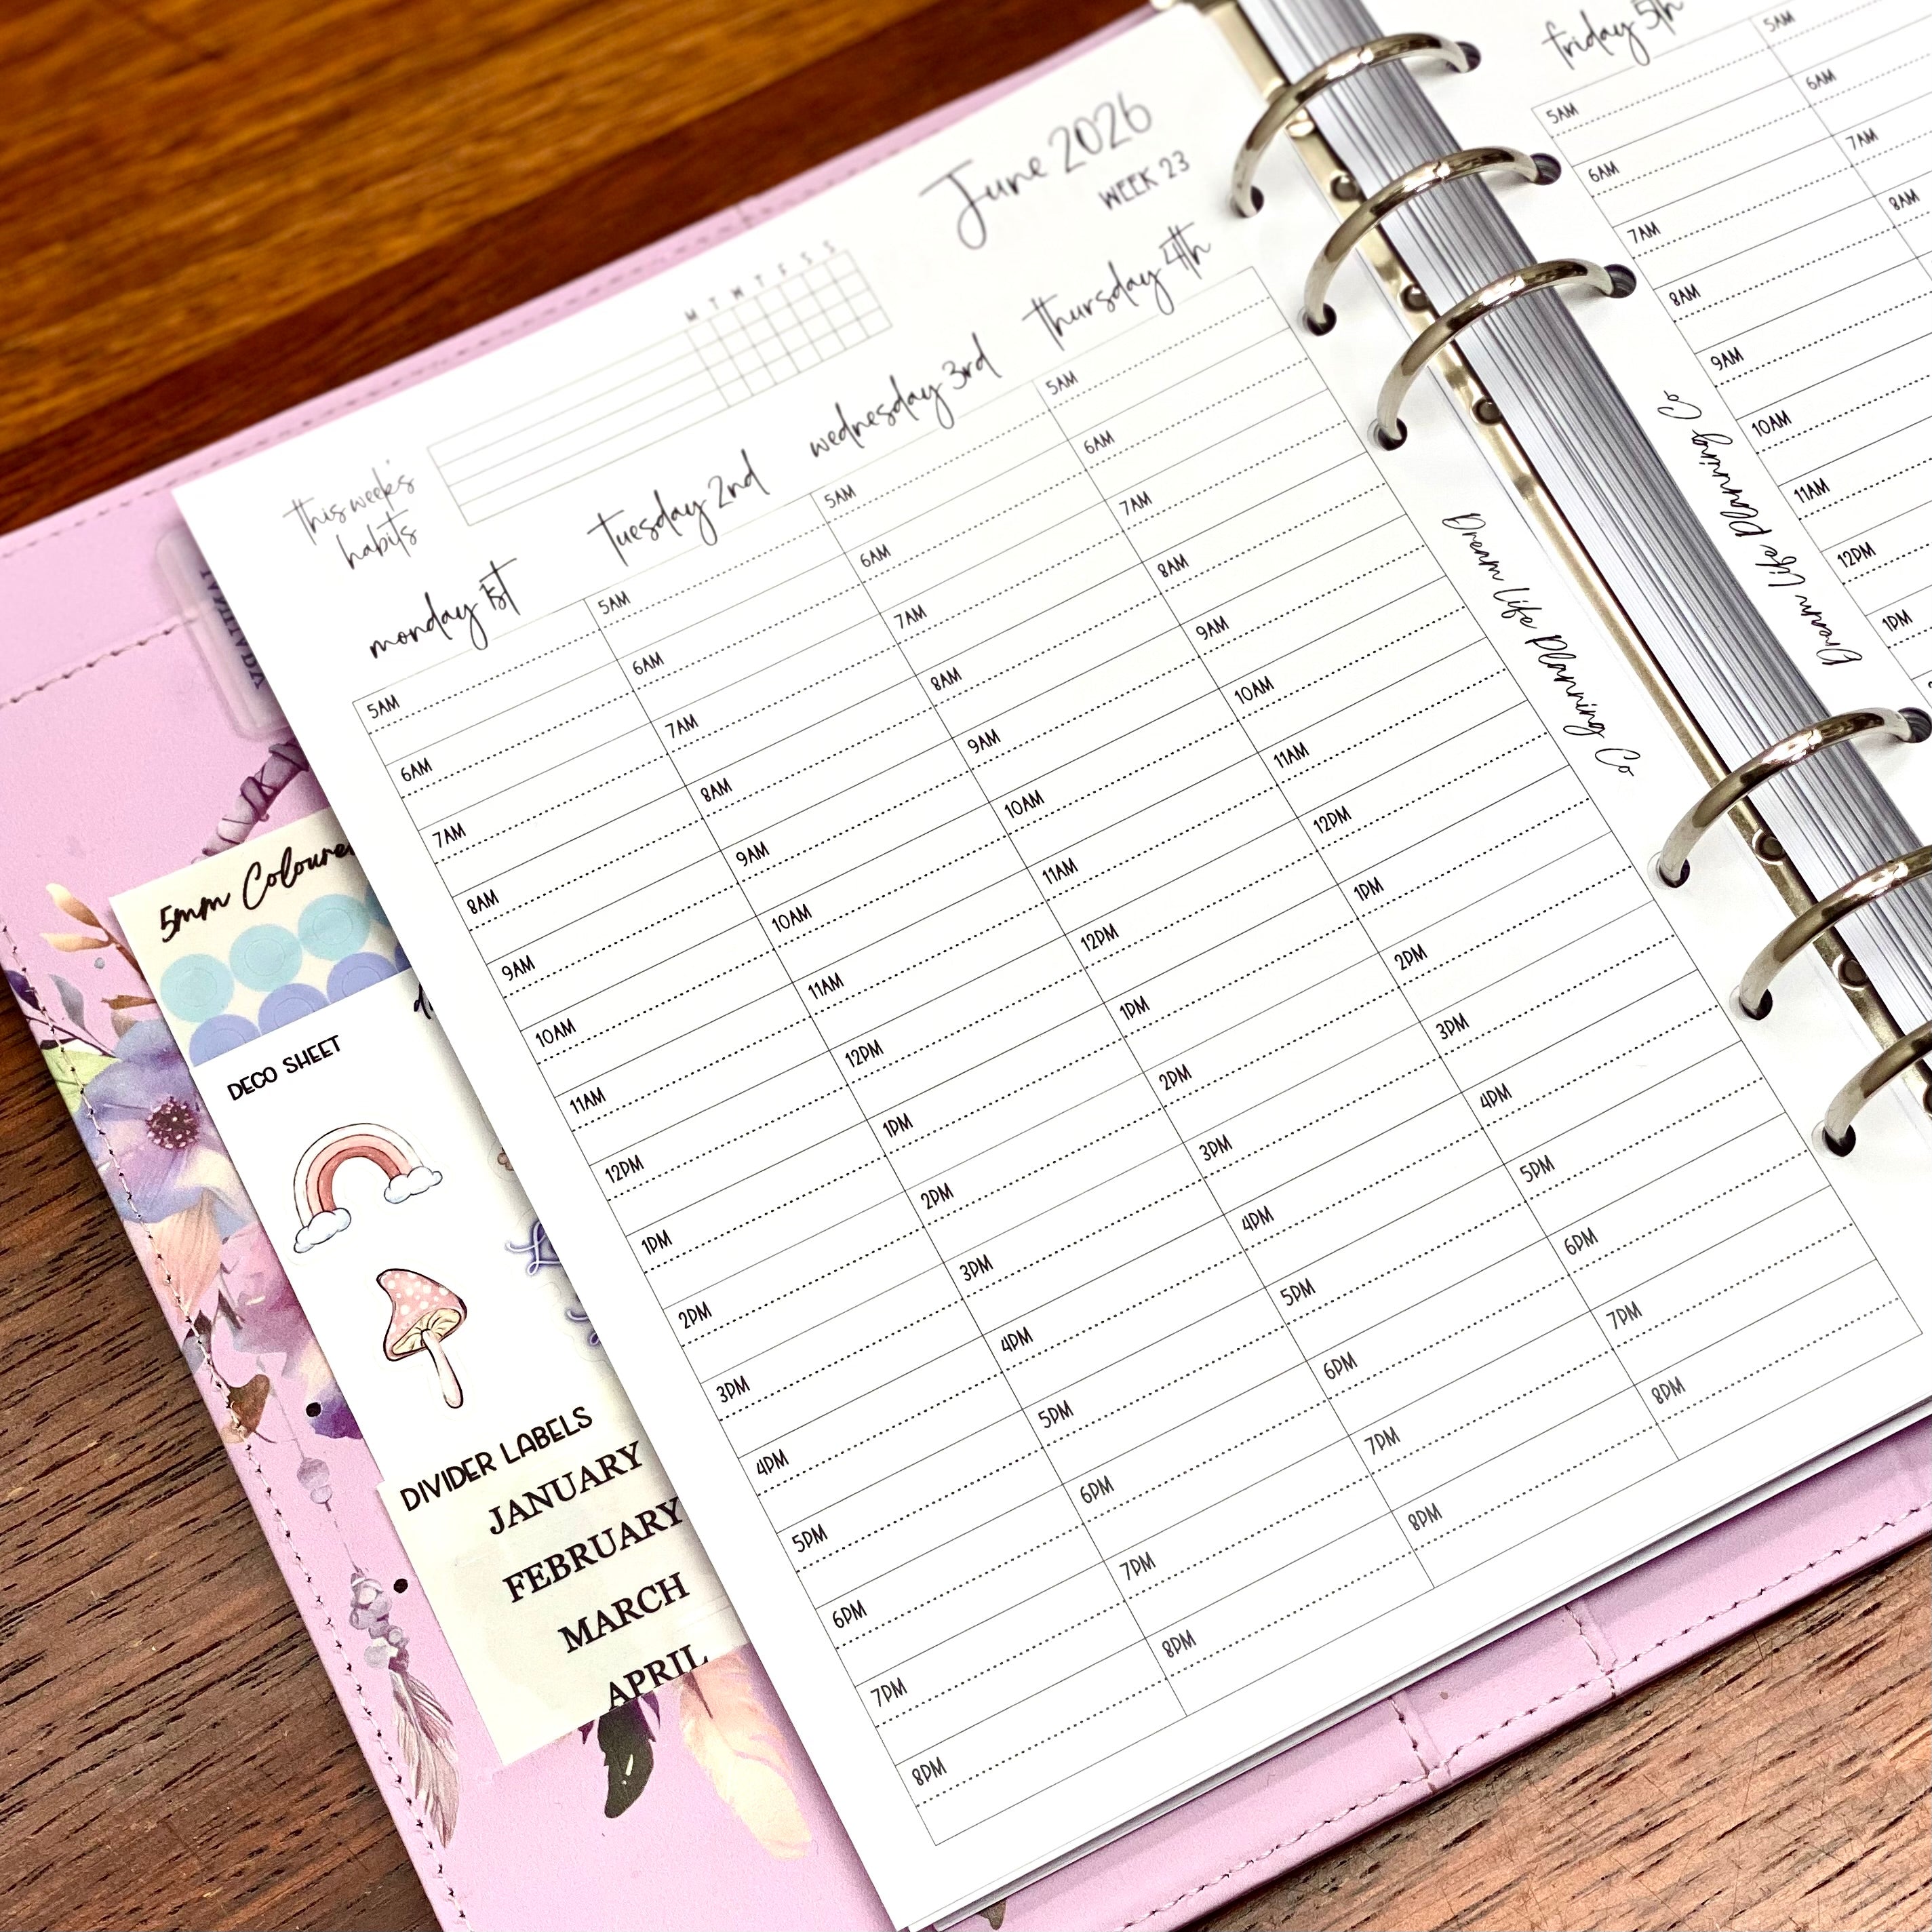 June 2026
WEEK 23
M T W T F S S
this week's
habits
monday 1st
tuesday 2nd
wednesday 3rd
thursday 4th
5AM
6AM
7AM
8AM
9AM
10AM
11AM
12PM
1PM
2PM
3PM
4PM
5PM
6PM
7PM
8PM
5AM
6AM
7AM
8AM
9AM
10AM
11AM
12PM
1PM
2PM
3PM
4PM
5PM
6PM
7PM
8PM
5AM
6AM
7AM
8AM
9AM
10AM
11AM
12PM
1PM
2PM
3PM
4PM
5PM
6PM
7PM
8PM
5AM
6AM
7AM
8AM
9AM
10AM
11AM
12PM
1PM
2PM
3PM
4PM
5PM
6PM
7PM
8PM
Dream Life Planning Co
friday 5th
5AM
6AM
7AM
8AM
9AM
10AM
11AM
12PM
1PM
5AM
6AM
7AM
8AM
Dream Life Planning Co
5mm
DECO SHEET
DIVIDER LABELS
JANUARY
FEBRUARY
MARCH
APRIL